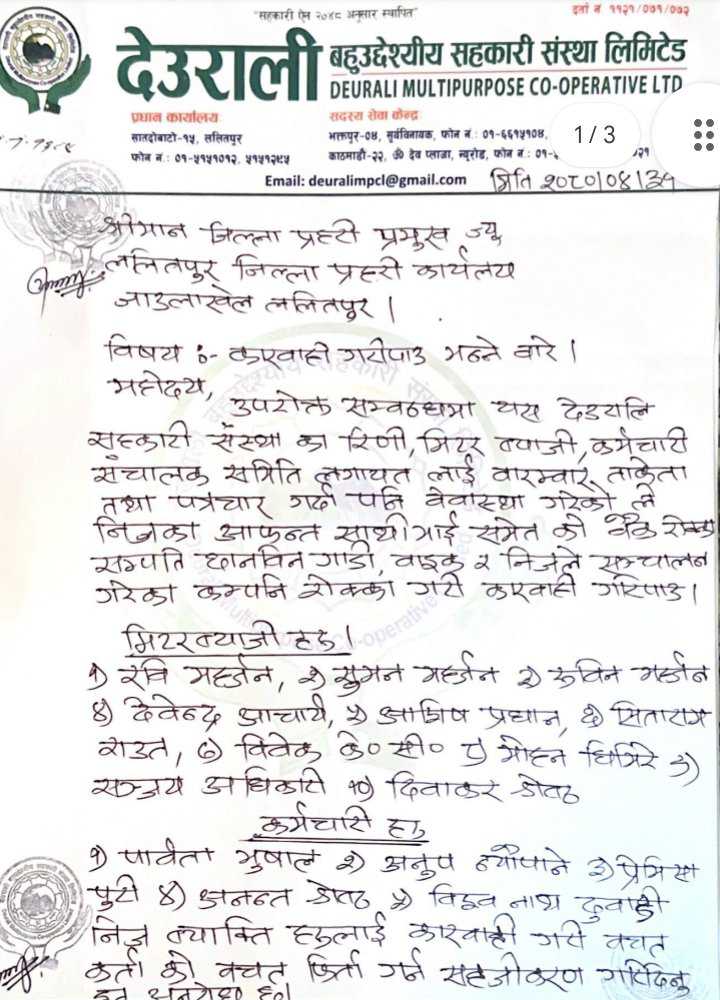 "सहकारी ऐन २०४८ अनुसार स्थापित"
दर्ता नं ११२१/०७१/०७२
देउराली बहुउद्देश्यीय सहकारी संस्था लिमिटेड
DEURALI MULTIPURPOSE CO-OPERATIVE LTD
प्रधान कार्यालय
सातदोबाटो-१५, ललितपुर
फोन नं.: ०१-५१५१०१२, ५१५१२८५
सदस्य सेवा केन्द्र
भक्तपुर-०४, सुर्यविनायक, फोन नं.: ०१-६६१५१०४,
काठमाडौं-२२, ॐ देव प्लाजा, न्युरोड, फोन नं.: ०१-
1/3
Email: deuralimpcl@gmail.com
मिति २०८०/०४/३१
श्रीमान जिल्ला प्रहरी प्रमुख ज्यू
ललितपुर जिल्ला प्रहरी कार्यलय
जाउलाखेल ललितपुर।
विषय :- कारवाही गरीपाउ भन्ने बारे।
महोदय,
उपरोक्त सम्बन्धमा यस देउरालि
सहकारी संस्था का रिणी, मिटर व्याजी, कर्मचारी
संचालक समिति लगायत लाई वारम्वार ताकेता
तथा पत्रचार गर्दा पनि वेवास्था गरेको ले
निजका आफन्त साथीभाई समेत को बैंक रोक्का
सम्पति छानविन गाडी, वाइक र निजले सञ्चालन
गरेका कम्पनि रोक्का गरी कारवाही गरिपाउ।
मिटरब्याजी हरु।
१) रवि महर्जन, २) सुमन महर्जन ३) रुविन महर्जन
४) देवेन्द्र आचार्य, ५) आशिष प्रधान, ६) सिताराम
राउत, ७) विवेक के० सी० ८) मोहन घिमिरे ९)
सञ्जय अधिकारी १०) दिवाकर
कर्मचारी हरु
१) पार्वता भुषाल २) अनुप न्यौपाने ३)
पुरी ४) अनन्त ५) विश्व नाथ दुवाडी
निज व्याक्ति हरुलाई कारवाही गरी वचत
कर्ता को वचत फिर्ता गर्न सहजीकरण गरिदिनु
हुन अनुरोध छ।